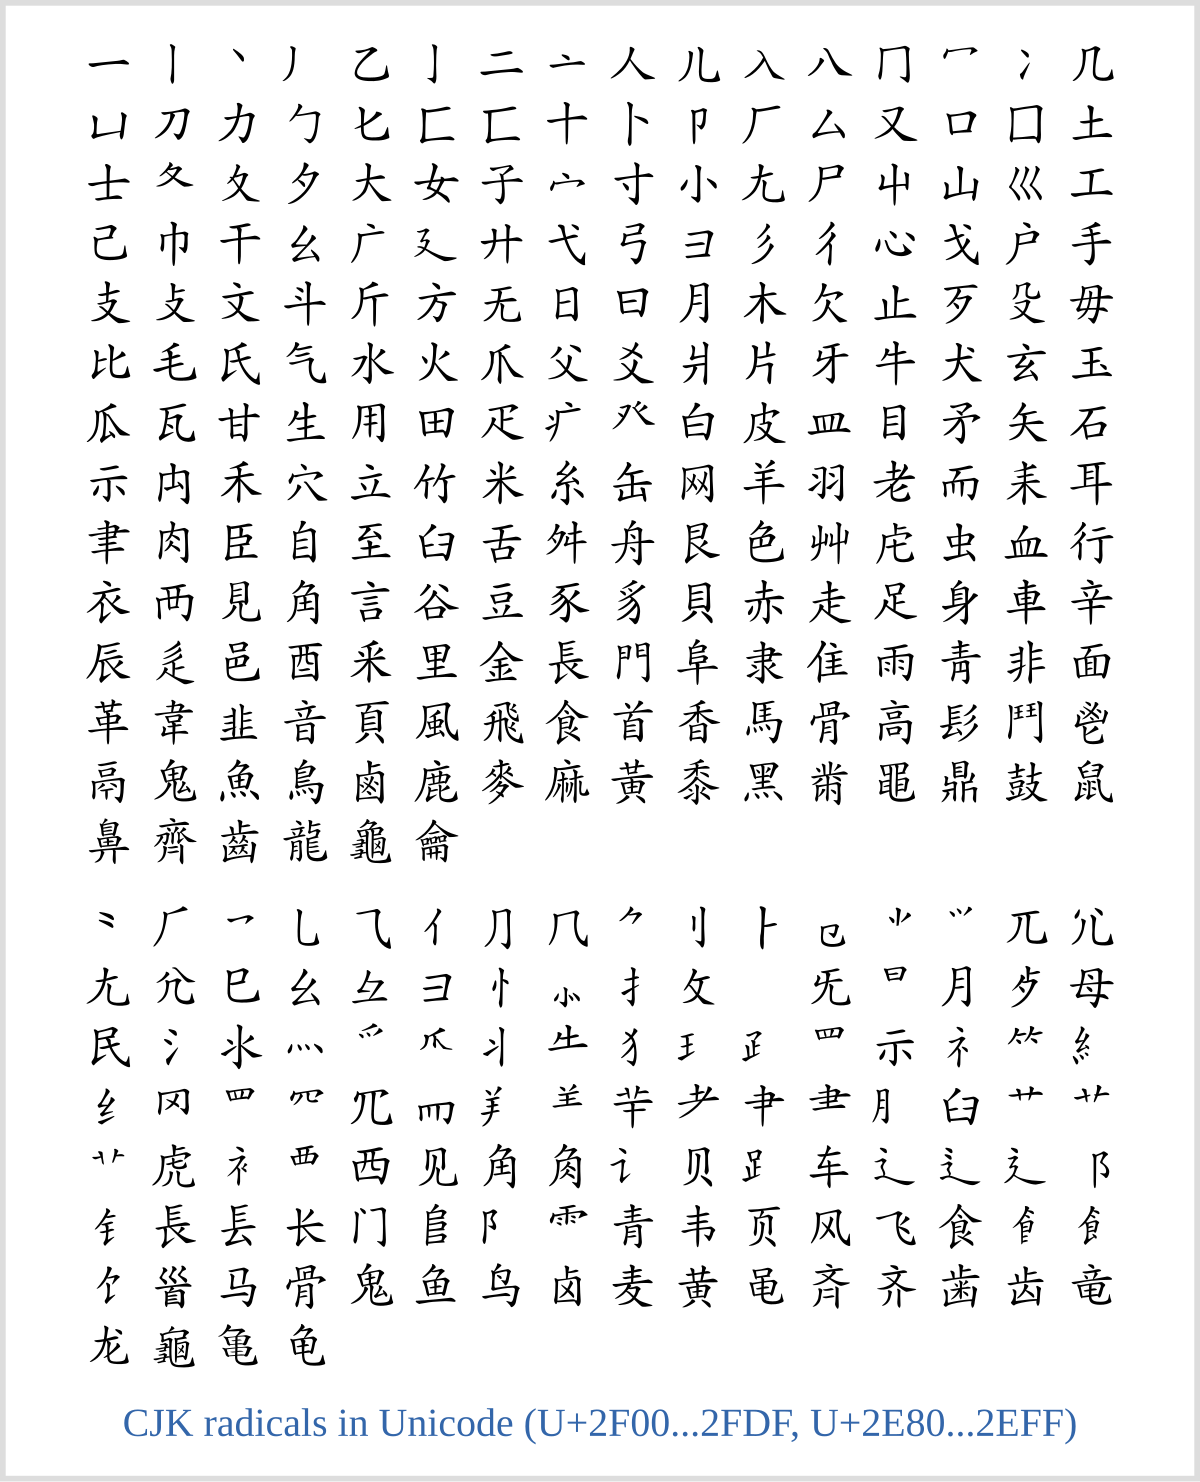 一 丨 丶 丿 乙 亅 二 亠 人 儿 入 八 冂 冖 冫 几
凵 刀 力 勹 匕 匚 匸 十 卜 卩 厂 厶 又 口 囗 土
士 夂 夊 夕 大 女 子 宀 寸 小 尢 尸 屮 山 巛 工
己 巾 干 幺 广 廴 廾 弋 弓 彐 彡 彳 心 戈 户 手
支 攴 文 斗 斤 方 无 日 曰 月 木 欠 止 歹 殳 毋
比 毛 氏 气 水 火 爪 父 爻 爿 片 牙 牛 犬 玄 玉
瓜 瓦 甘 生 用 田 疋 疒 癶 白 皮 皿 目 矛 矢 石
示 禸 禾 穴 立 竹 米 糸 缶 网 羊 羽 老 而 耒 耳
聿 肉 臣 自 至 臼 舌 舛 舟 艮 色 艸 虍 虫 血 行
衣 襾 見 角 言 谷 豆 豕 豸 貝 赤 走 足 身 車 辛
辰 辵 邑 酉 釆 里 金 長 門 阜 隶 隹 雨 靑 非 面
革 韋 韭 音 頁 風 飛 食 首 香 馬 骨 高 髟 鬥 鬯
鬲 鬼 魚 鳥 鹵 鹿 麥 麻 黃 黍 黑 黹 黽 鼎 鼓 鼠
鼻 齊 齒 龍 龜 龠
⺀ ⺁ ⺂ ⺃ ⺄ ⺅ ⺆ ⺇ ⺈ ⺉ ⺊ ⺋ ⺌ ⺍ ⺎ ⺏
⺐ ⺑ ⺒ ⺓ ⺔ ⺕ ⺖ ⺗ ⺘ ⺙ ⺛ ⺜ ⺝ ⺞ ⺟
⺠ ⺡ ⺢ ⺣ ⺤ ⺥ ⺦ ⺧ ⺨ ⺩ ⺪ ⺫ ⺬ ⺭ ⺮ ⺯
⺰ ⺱ ⺲ ⺳ ⺴ ⺵ ⺶ ⺷ ⺸ ⺹ ⺺ ⺻ ⺼ ⺽ ⺾ ⺿
⻀ ⻁ ⻂ ⻃ ⻄ ⻅ ⻆ ⻇ ⻈ ⻉ ⻊ ⻋ ⻌ ⻍ ⻎ ⻏
⻐ ⻑ ⻒ ⻓ ⻔ ⻕ ⻖ ⻗ ⻘ ⻙ ⻚ ⻛ ⻜ ⻝ ⻞ ⻟
⻠ ⻡ ⻢ ⻣ ⻤ ⻥ ⻦ ⻧ ⻨ ⻩ ⻪ ⻫ ⻬ ⻭ ⻮ ⻯
⻰ ⻱ ⻲ ⻳
CJK radicals in Unicode (U+2F00...2FDF, U+2E80...2EFF)